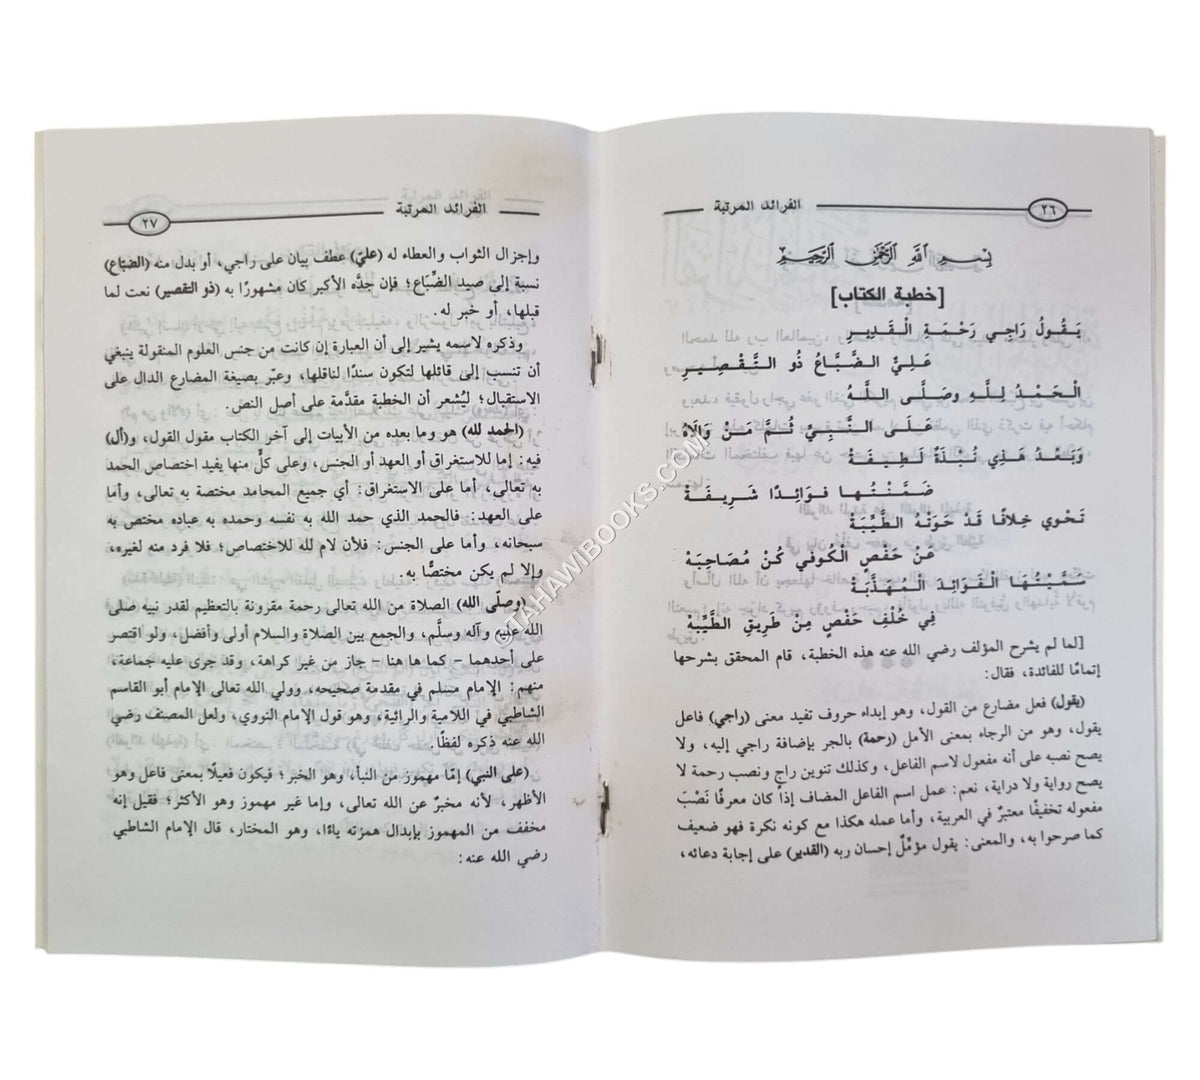 الفرائد المرتبة
٢٦
بسم الله الرحمن الرحيم
[خطبة الكتاب]
يَقُولُ رَاجِي رَحْمَةِ الْقَدِيرِ
عَلِيٌّ الضَّبَّاعُ ذُو التَّقْصِيرِ
الْحَمْدُ لِلَّهِ وصَلَّى اللَّهُ
عَلَى النَّبِيِّ ثُمَّ مَنْ وَالَاهُ
وَبَعْدُ هَذِي نُبْذَةٌ لَطِيفَةْ
ضَمَّنْتُها فَوَائِدًا شَرِيفَةْ
تَحْوِي خِلَافًا قَدْ حَوَتْهُ الطَّيِّبَةْ
عَنْ حَفْصٍ الْكُوفِي كُنْ مُصَاحِبَهْ
سَمَّيْتُهَا الْفَوَائِدَ الْمُهَذَّبَةْ
فِي خُلْفِ حَفْصٍ مِنْ طَرِيقِ الطَّيِّبَةْ
[لما لم يشرح المؤلف رضي الله عنه هذه الخطبة، قام المحقق بشرحها
إتمامًا للفائدة، فقال:
(يقول) فعل مضارع من القول، وهو إبداء حروف تفيد معنى (راجي) فاعل
يقول، وهو من الرجاء بمعنى الأمل (رحمة) بالجر بإضافة راجي إليه، ولا
يصح نصبه على أنه مفعول لاسم الفاعل، وكذلك تنوين راجٍ ونصب رحمة لا
يصح رواية ولا دراية، نعم: عمل اسم الفاعل المضاف إذا كان معرفًا نَصْبَ
مفعوله تخفيفًا معتبرٌ في العربية، وأما عمله هكذا مع كونه نكرة فهو ضعيف
كما صرحوا به، والمعنى: يقول مؤمِّلٌ إحسان ربه (القدير) على إجابة دعائه،
الفرائد المرتبة
٢٧
وإجزال الثواب والعطاء له (عليّ) عطف بيان على راجي، أو بدل منه (الضبّاع)
نسبة إلى صيد الضِّبَاع؛ فإن جدَّه الأكبر كان مشهورًا به (ذو التقصير) نعت لما
قبلها، أو خبر له.
وذكره لاسمه يشير إلى أن العبارة إن كانت من جنس العلوم المنقولة ينبغي
أن تنسب إلى قائلها لتكون سندًا لناقلها، وعبّر بصيغة المضارع الدال على
الاستقبال؛ ليُشعر أن الخطبة مقدَّمة على أصل النص.
(الحمد لله) هو وما بعده من الأبيات إلى آخر الكتاب مقول القول، و(أل)
فيه: إما للاستغراق أو العهد أو الجنس، وعلى كلٍّ منها يفيد اختصاص الحمد
به تعالى، أما على الاستغراق: أي جميع المحامد مختصة به تعالى، وأما
على العهد: فالحمد الذي حمد الله به نفسه وحمده به عباده مختص به
سبحانه، وأما على الجنس: فلأن لام لله للاختصاص؛ فلا فرد منه لغيره،
وإلا لم يكن مختصًّا به.
(وصلّى الله) الصلاة من الله تعالى رحمة مقرونة بالتعظيم لقدر نبيه صلى
الله عليه وآله وسلَّم، والجمع بين الصلاة والسلام أولى وأفضل، ولو اقتصر
على أحدهما – كما ها هنا – جاز من غير كراهة، وقد جرى عليه جماعة،
منهم: الإمام مسلم في مقدمة صحيحه، وولي الله تعالى الإمام أبو القاسم
الشاطبي في اللامية والرائية، وهو قول الإمام النووي، ولعل المصنف رضي
الله عنه ذكره لفظًا.
(على النبي) إمّا مهموز من النبأ، وهو الخبر؛ فيكون فعيلًا بمعنى فاعل وهو
الأظهر، لأنه مخبرٌ عن الله تعالى، وإما غير مهموز وهو الأكثر؛ فقيل إنه
مخفف من المهموز بإبدال همزته ياءًا، وهو المختار، قال الإمام الشاطبي
رضي الله عنه:
©TAHAWIBOOKS.COM